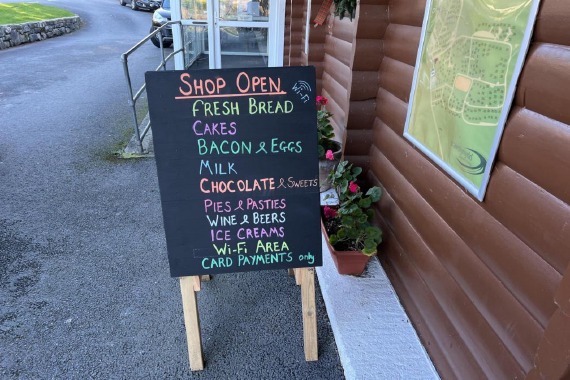 SHOP OPEN
Wi-Fi
FRESH BREAD
CAKES
BACON & EGGS
MILK
CHOCOLATE & SWEETS
PIES & PASTIES
WINE & BEERS
ICE CREAMS
Wi-Fi AREA
CARD PAYMENTS only